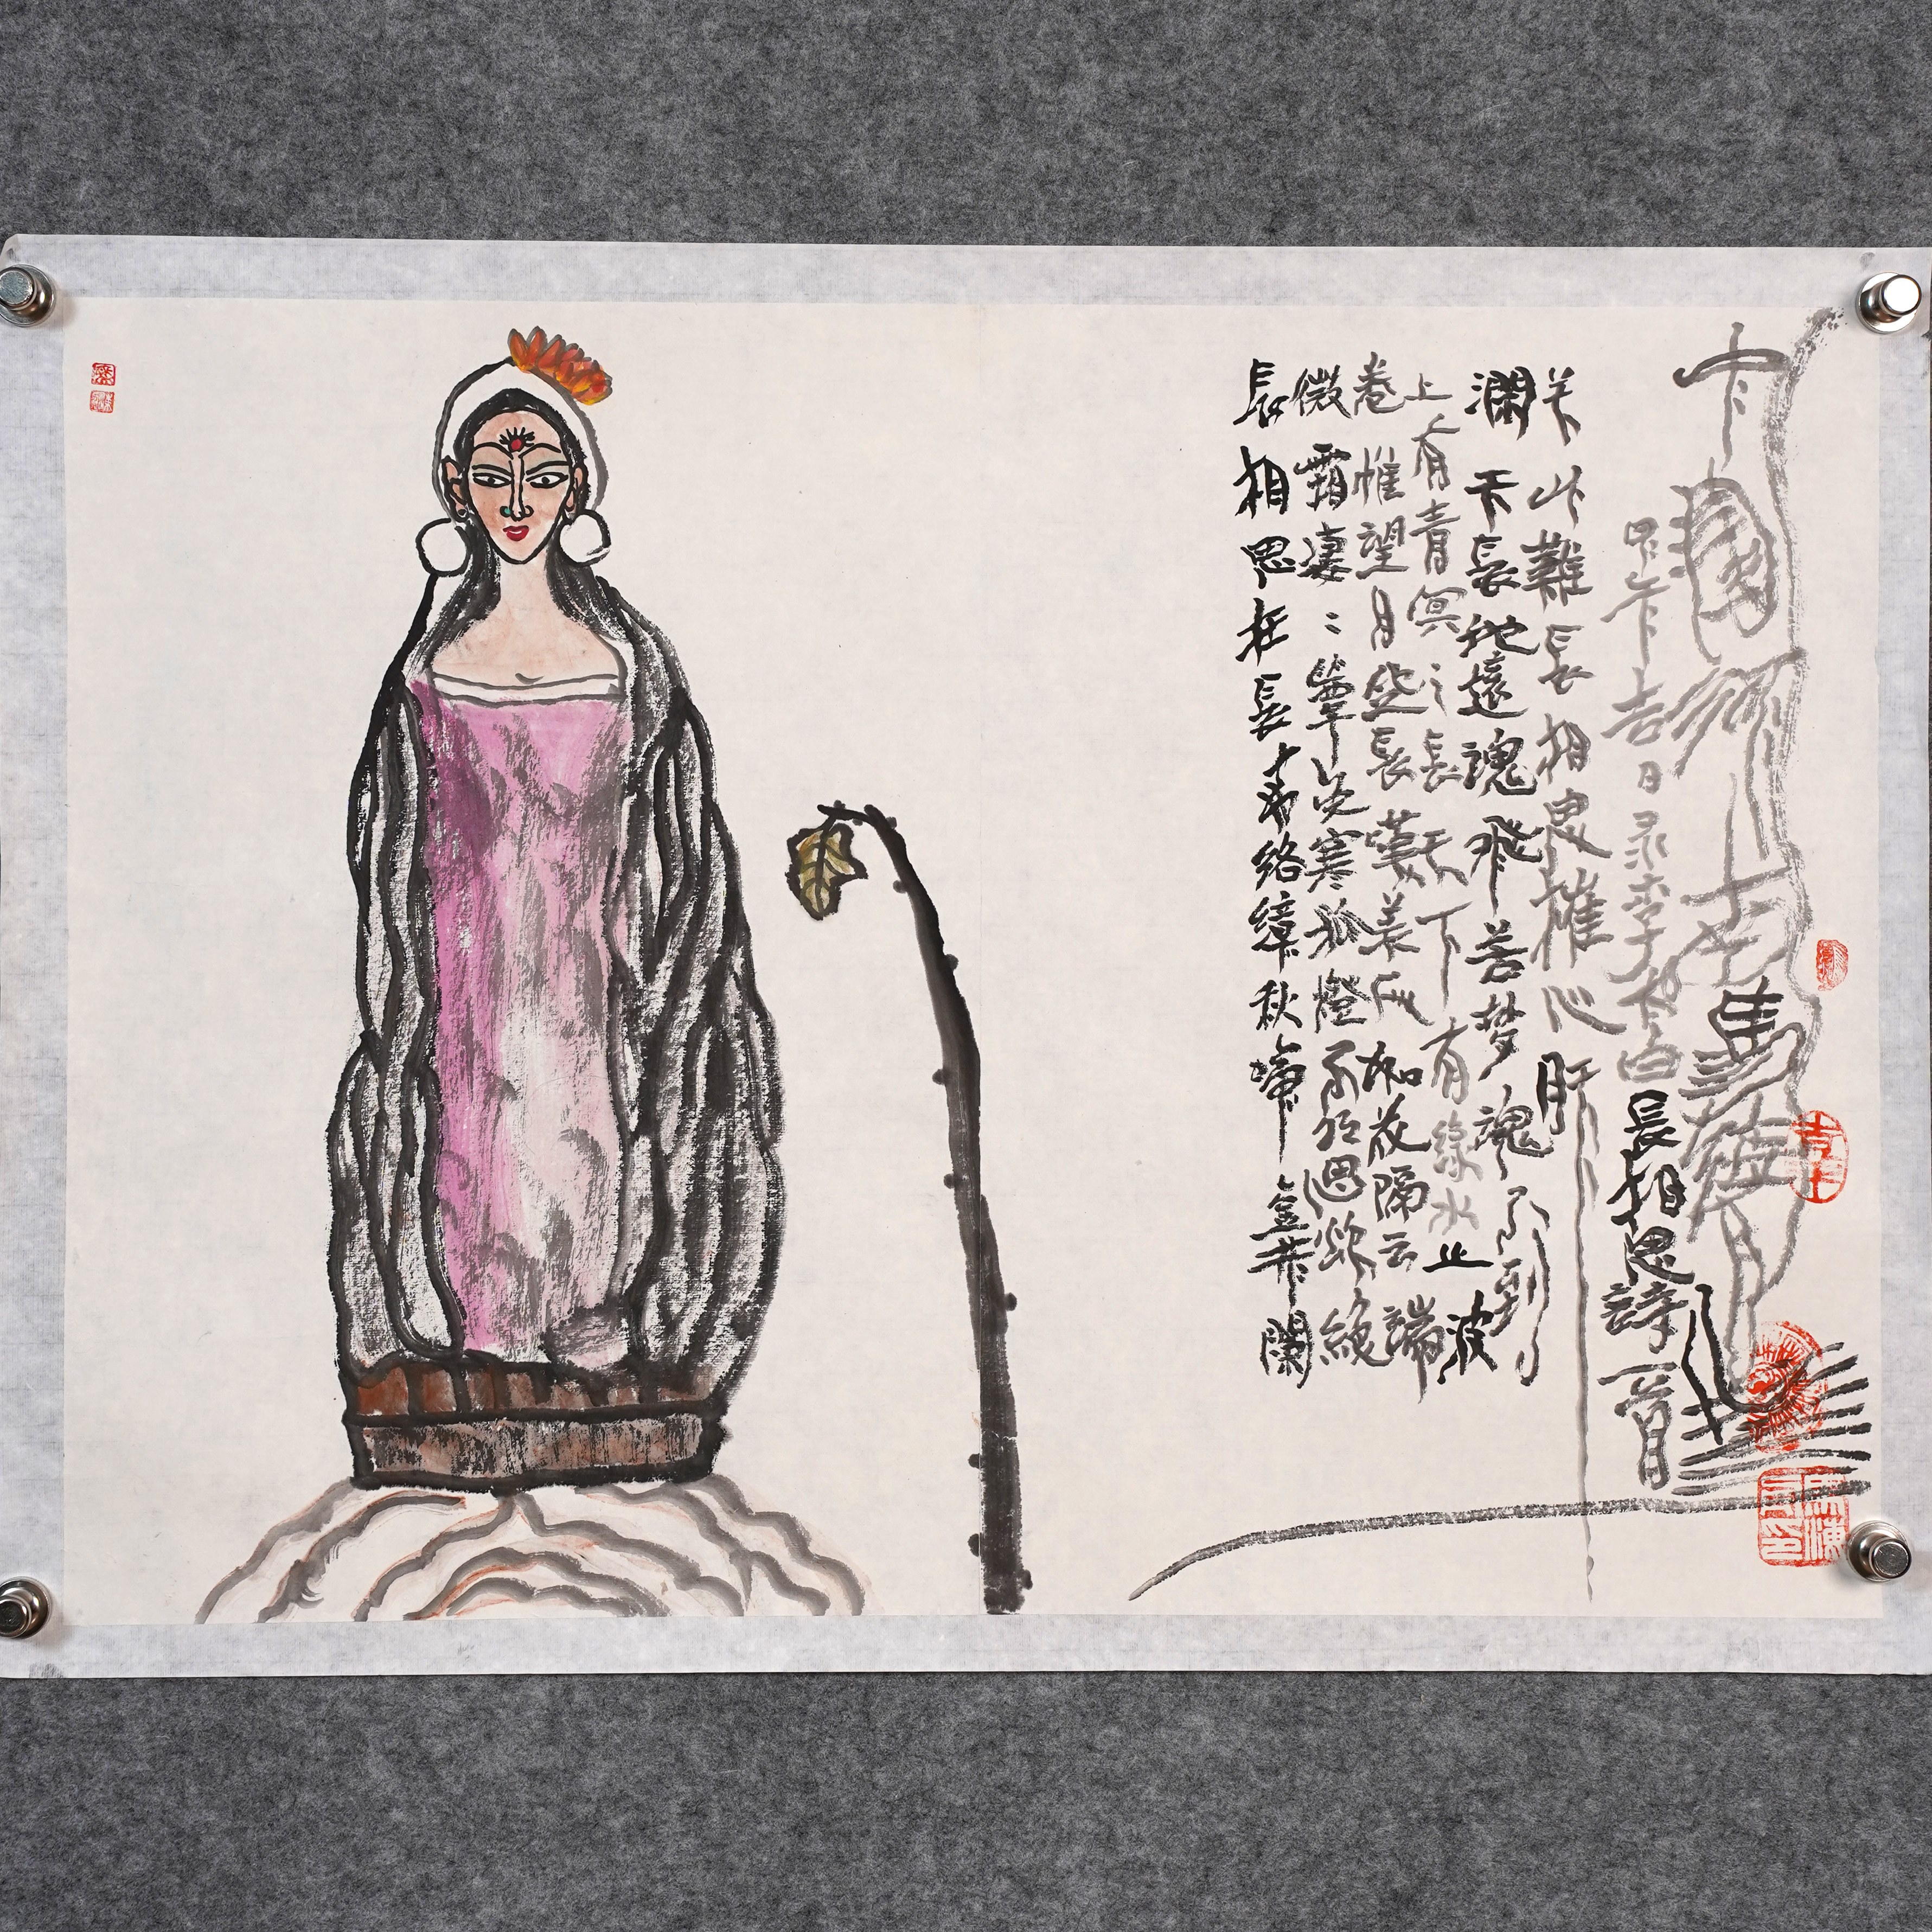 長相思在長安絡緯秋啼金井闌
微霜凄〻簟色寒孤燈不明思欲絶
卷帷望月空長嘆美人如花隔云端
上有青冥之長天下有緑水之波
瀾天長地遠魂飛苦夢魂不到
关山難長相思摧心肝
吉日录李太白長相思詩一首